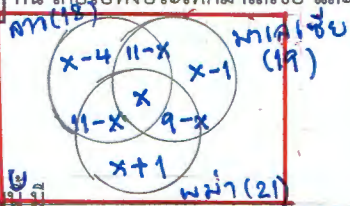 ลาว(18)
มาเลเซีย
(19)
x-4
11-x
x-1
x
11-x
9-x
x+1
พม่า(21)
U